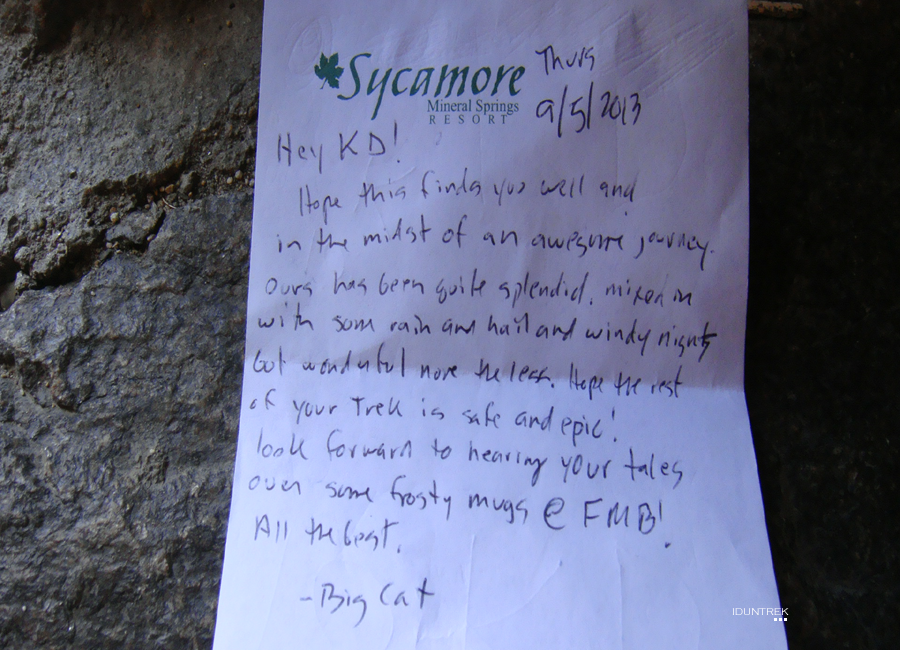 Sycamore
Mineral Springs
RESORT
Thurs
9/5/2013
Hey KD!
Hope this finds you well and
in the midst of an awesome journey.
ours has been quite splendid. mixed in
with some rain and hail and windy nights
but wonderful none the less. Hope the rest
of your Trek is safe and epic!
look forward to hearing your tales
over some frosty mugs @ FMB!
All the best,
-Big Cat
IDUNTREK